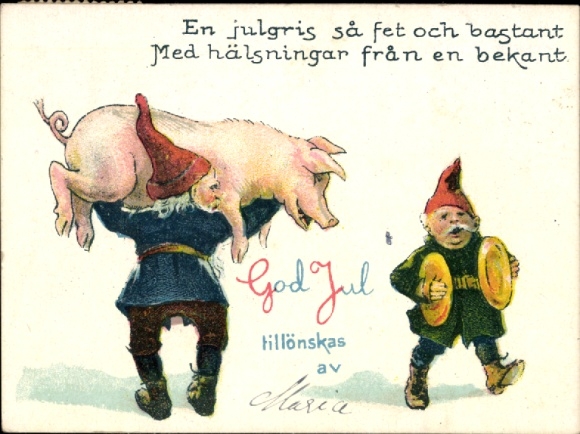 En julgris så fet och bastant
Med hälsningar från en bekant.
God Jul
tillönskas
av
Maria